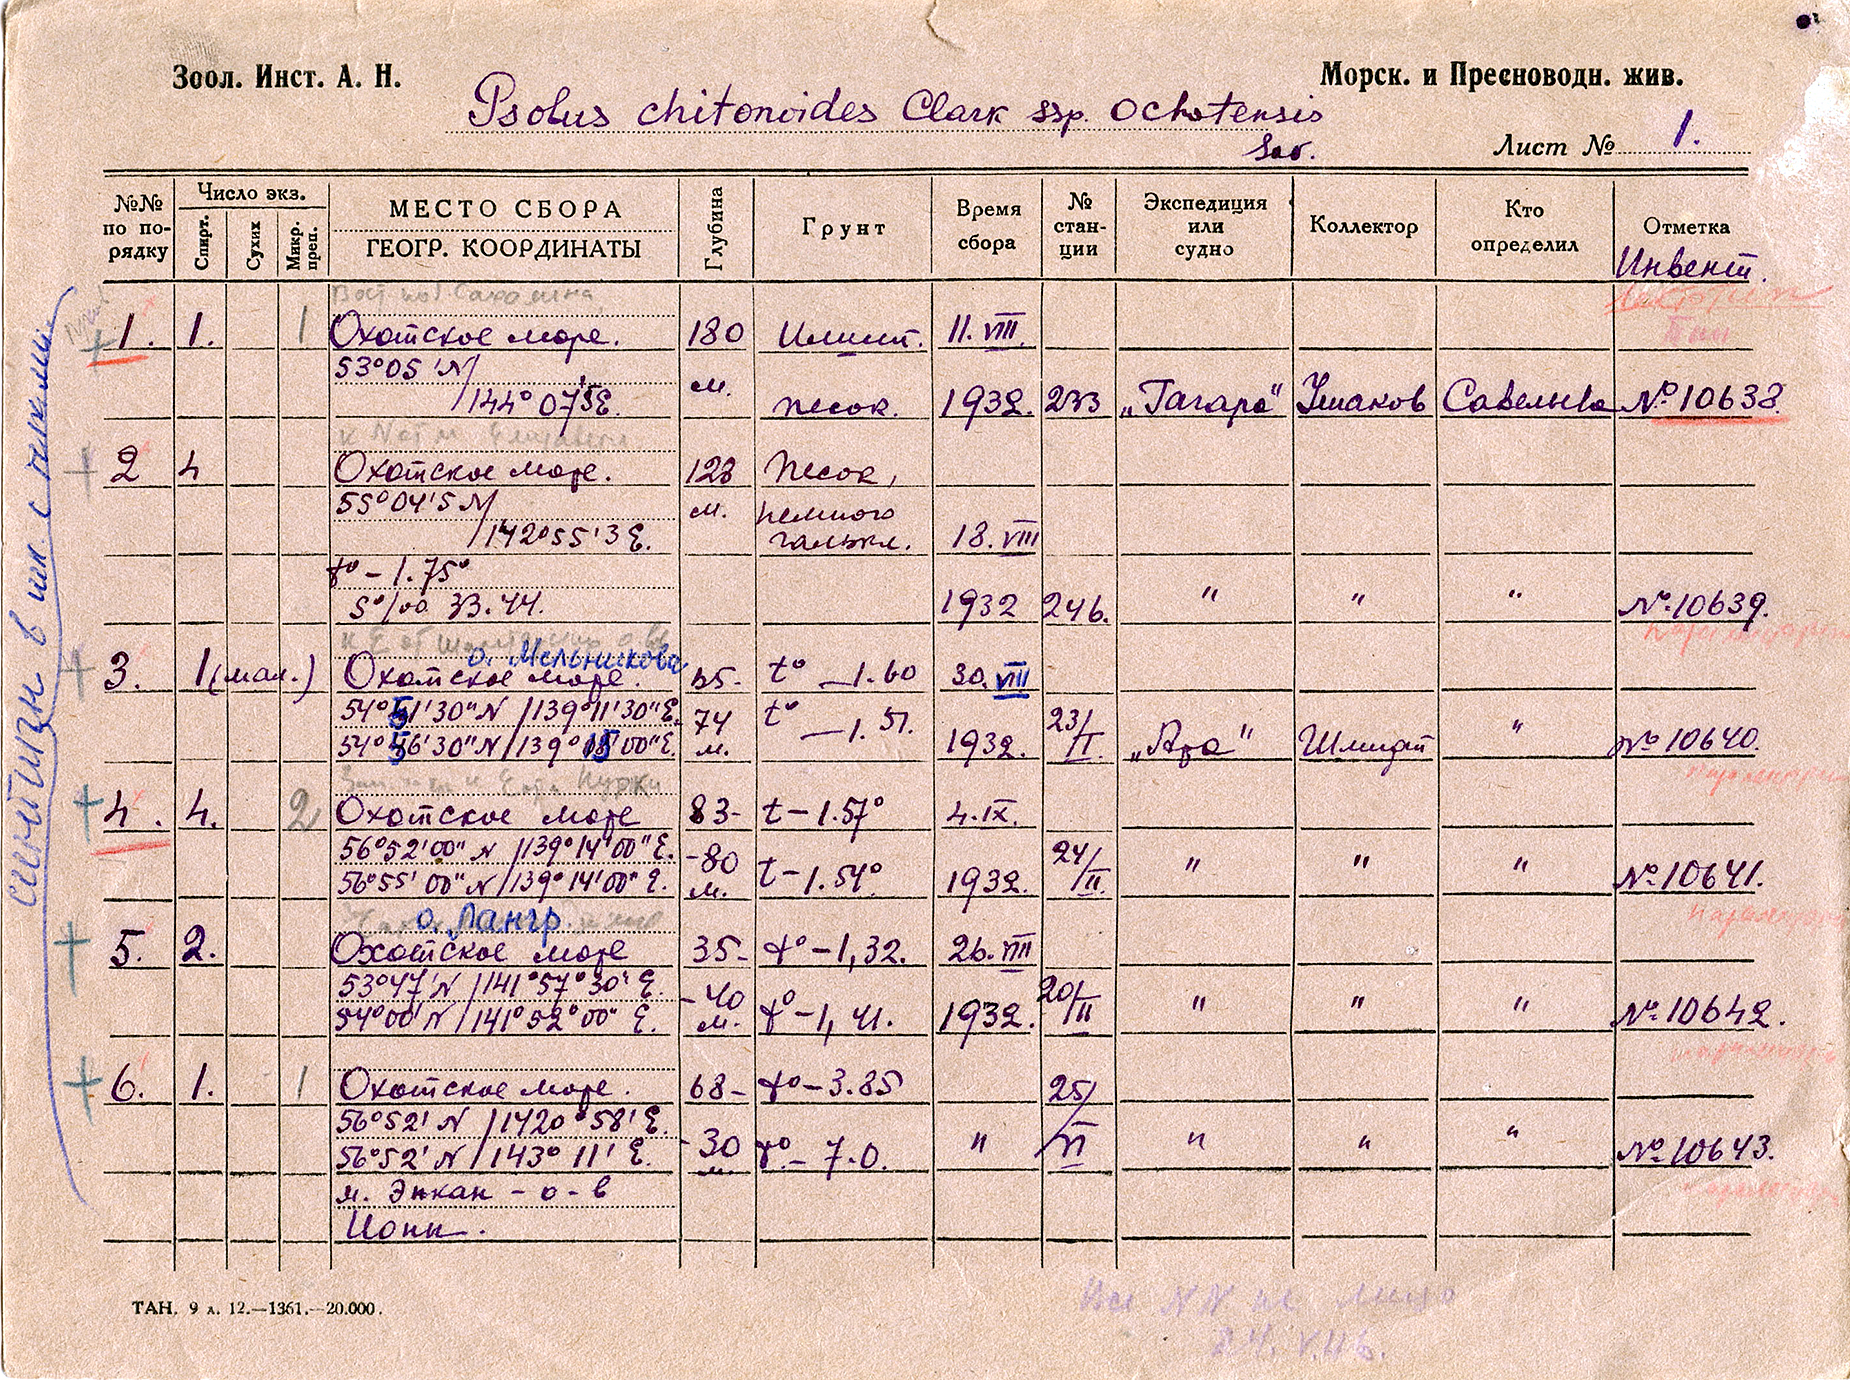 Зоол. Инст. А. Н.
Морск. и Пресноводн. жив.
Psolus chitonoides Clark ssp. ochotensis
Sav.
Лист № 1.
№№ по по-рядку
Число экз.
Спирт.
Сухих
Микр. преп.
МЕСТО СБОРА
ГЕОГР. КООРДИНАТЫ
Глубина
Грунт
Время сбора
№ стан-ции
Экспедиция или судно
Коллектор
Кто определил
Отметка
Инвент.
синтипы в шк. с типами
1. 1. 1 Охотское море. 180 Илист. 11.VIII.
53°05'N/ м.
/144°07'5E. песок. 1932. 233 „Гагара" Ушаков Савельева № 10638.
2 4 Охотское море. 128 Песок,
55°04'5N/ м. немного
/142°55'3E. гальки. 18.VIII
t° -1.75°
S°/oo 33.44. 1932 246. " " " №.10639.
о. Мельникова
3. 1 (мал.) Охотское море. t° -1.60 30.VIII
54°51'30"N /139°11'30"E. 74 t° -1.51. 23/
54°56'30"N/139° 15'00"E. м. 1932. II. „Ара" Шмидт " № 10640.
4. 4. 2 Охотское море 83- t-1.57° 4.IX.
56°52'00"N /139°14'00"E. -80 24/
56°55'00"N/139°14'00"E. м. t-1.54° 1932. II. " " " №10641.
о. Лангр.
5. 2. Охотское море 35- t°-1,32. 26.VIII
53°47'N /141°57°30'E. -40 20/
54°00'N /141°52°00"E. м. t°-1,41. 1932. II " " " №10642.
6. 1. 1 Охотское море. 68- t°-3.85 25/
56°52'N /1420°58'E. -30
56°52'N /143°11'E. м. t°- 7.0. " VI " " " №10643.
м. Энкан - о-в
Ионы.
ТАН. 9 л. 12.—1361.—20.000.